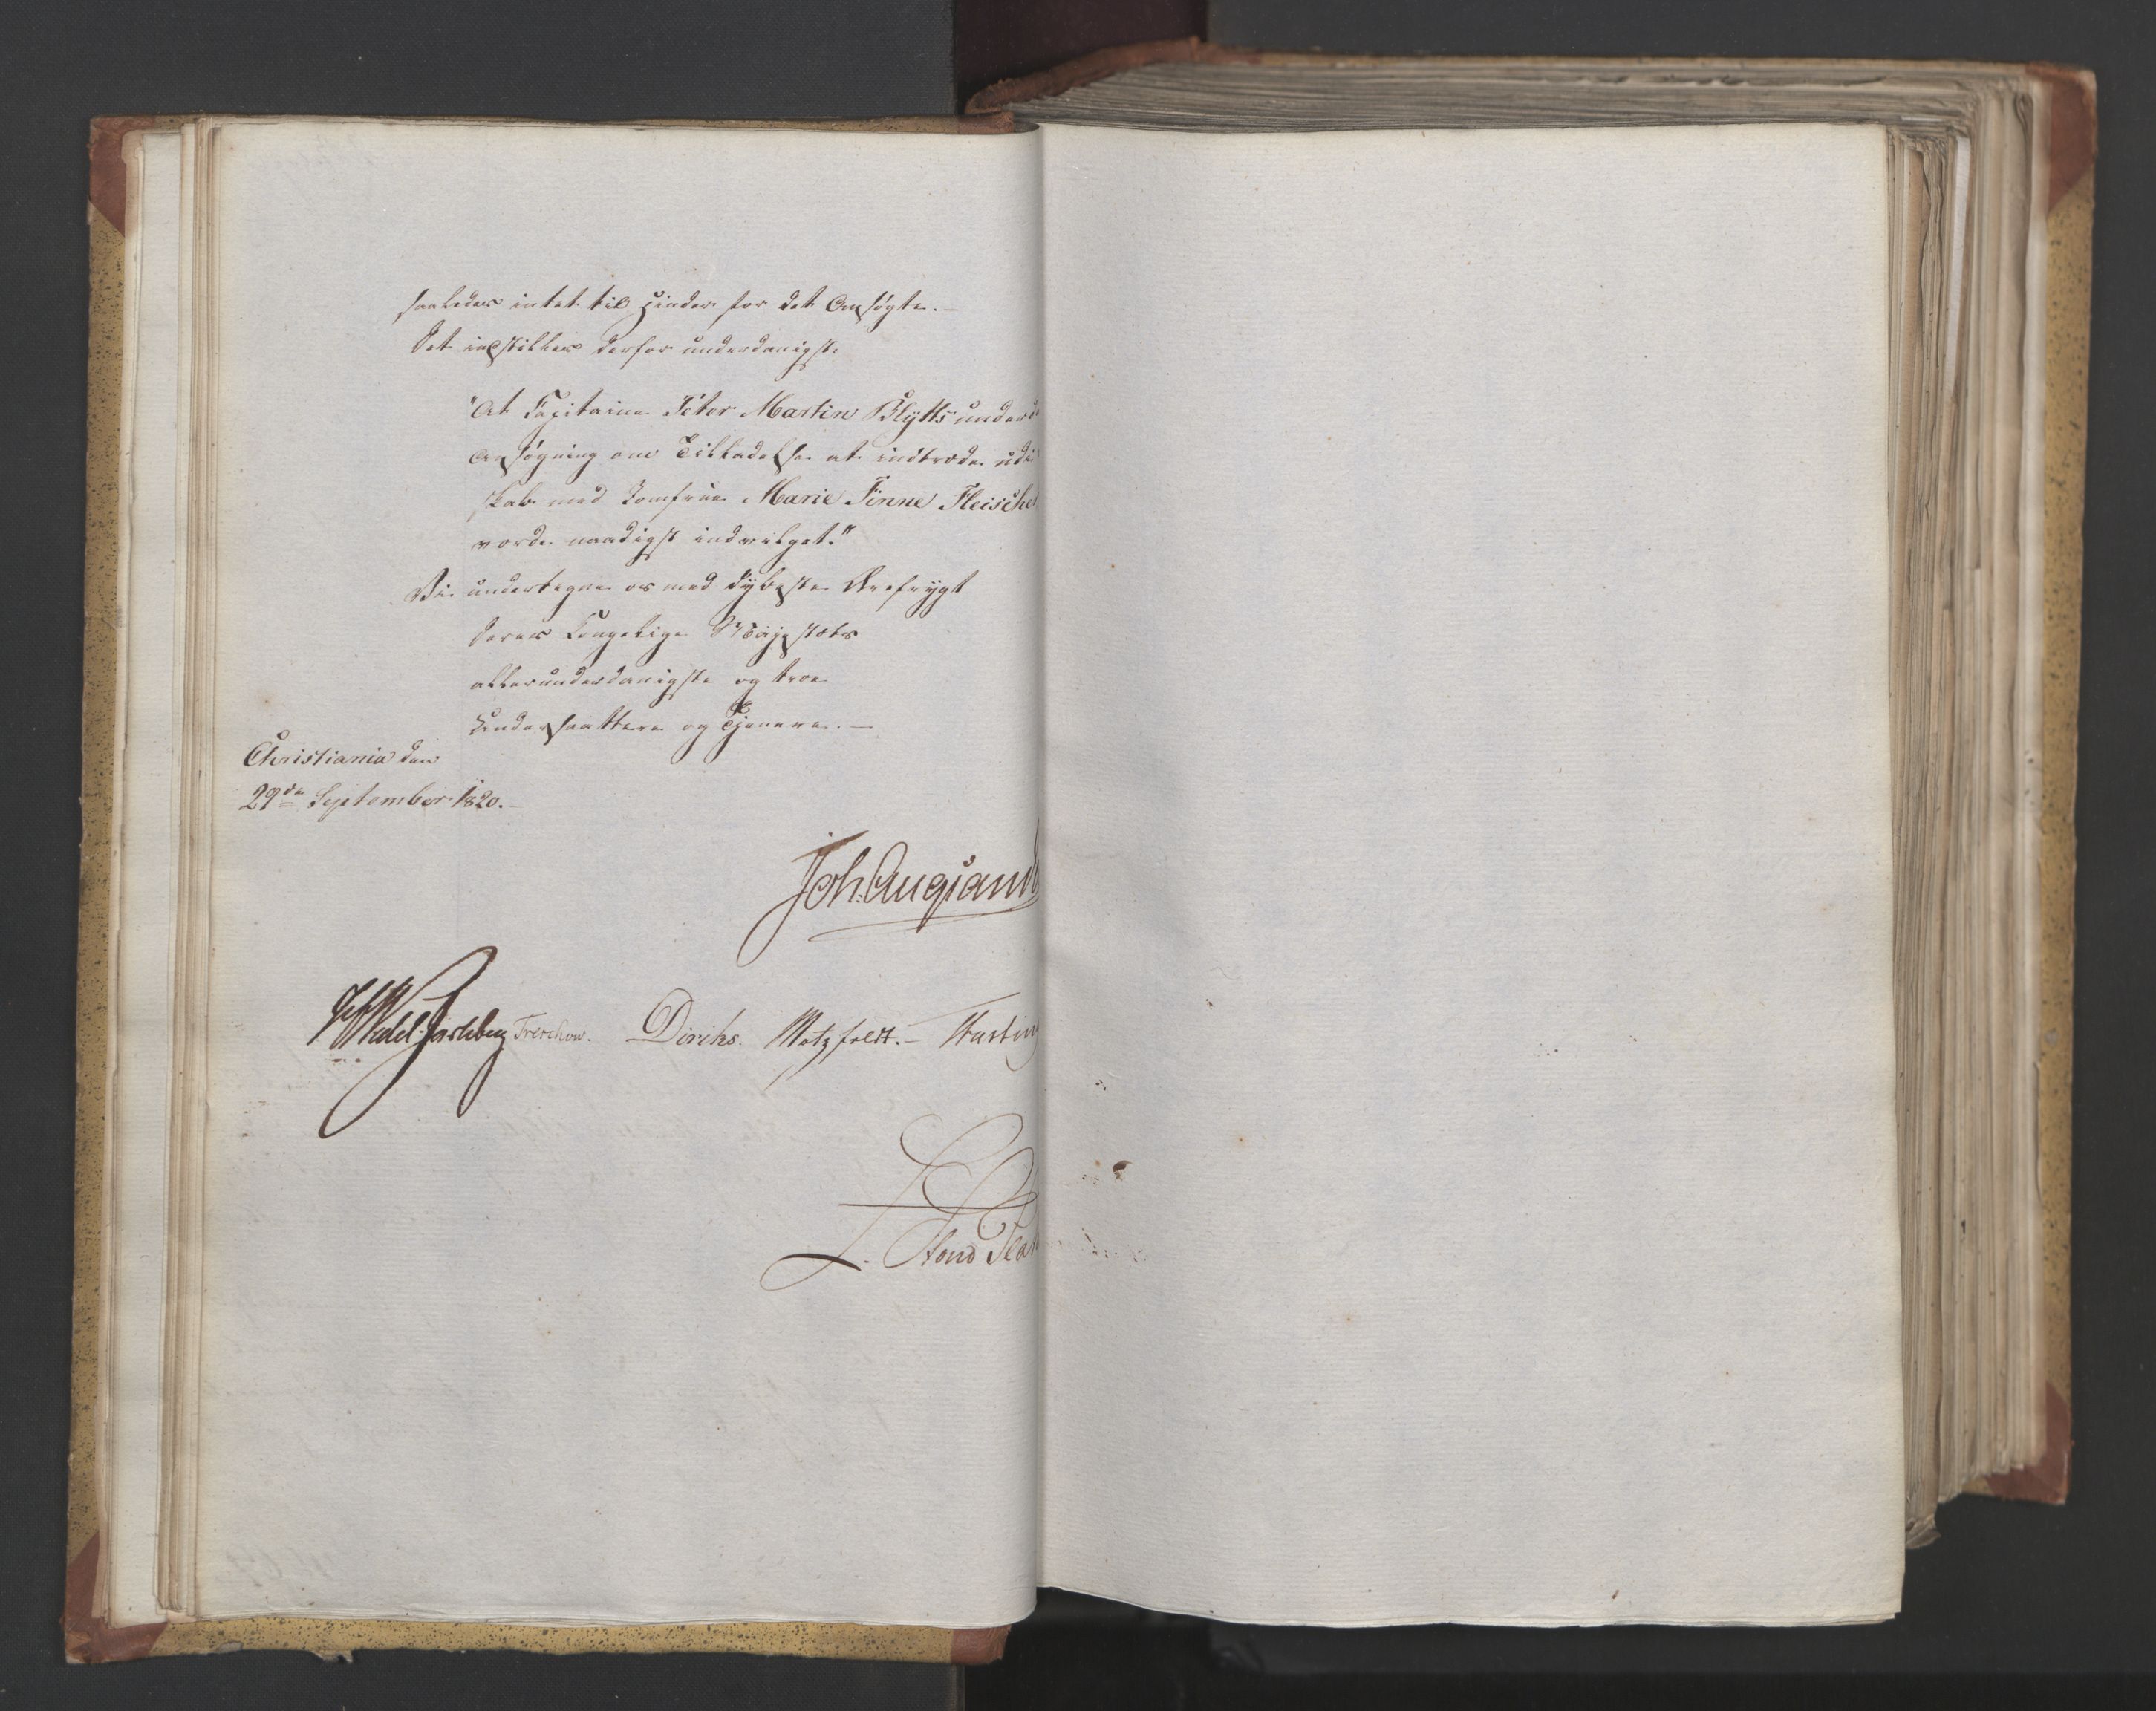 saaledes intet til Hinder for det Ansøgte. —
Det indstilles derfor underdanigst:
"At Capitaine Peter Martin Blytts underd
Ansøgning om Tilladelse at indtræde udi
skab med Jomfrue Marie Finne Fleische
vorde naadigst indvilget."
Vi undertegne os med dybeste Ærefrygt
Deres Kongelige Majestæts
allerunderdanigste og troe
Undersaattere og Tjenere. —
Christiania den
29de September 1820. —
Joh: Aug: Sand
Wedel-Jarlsberg Treschow. Diriks. Motzfeldt. — Fasting
L. Stoud Plat